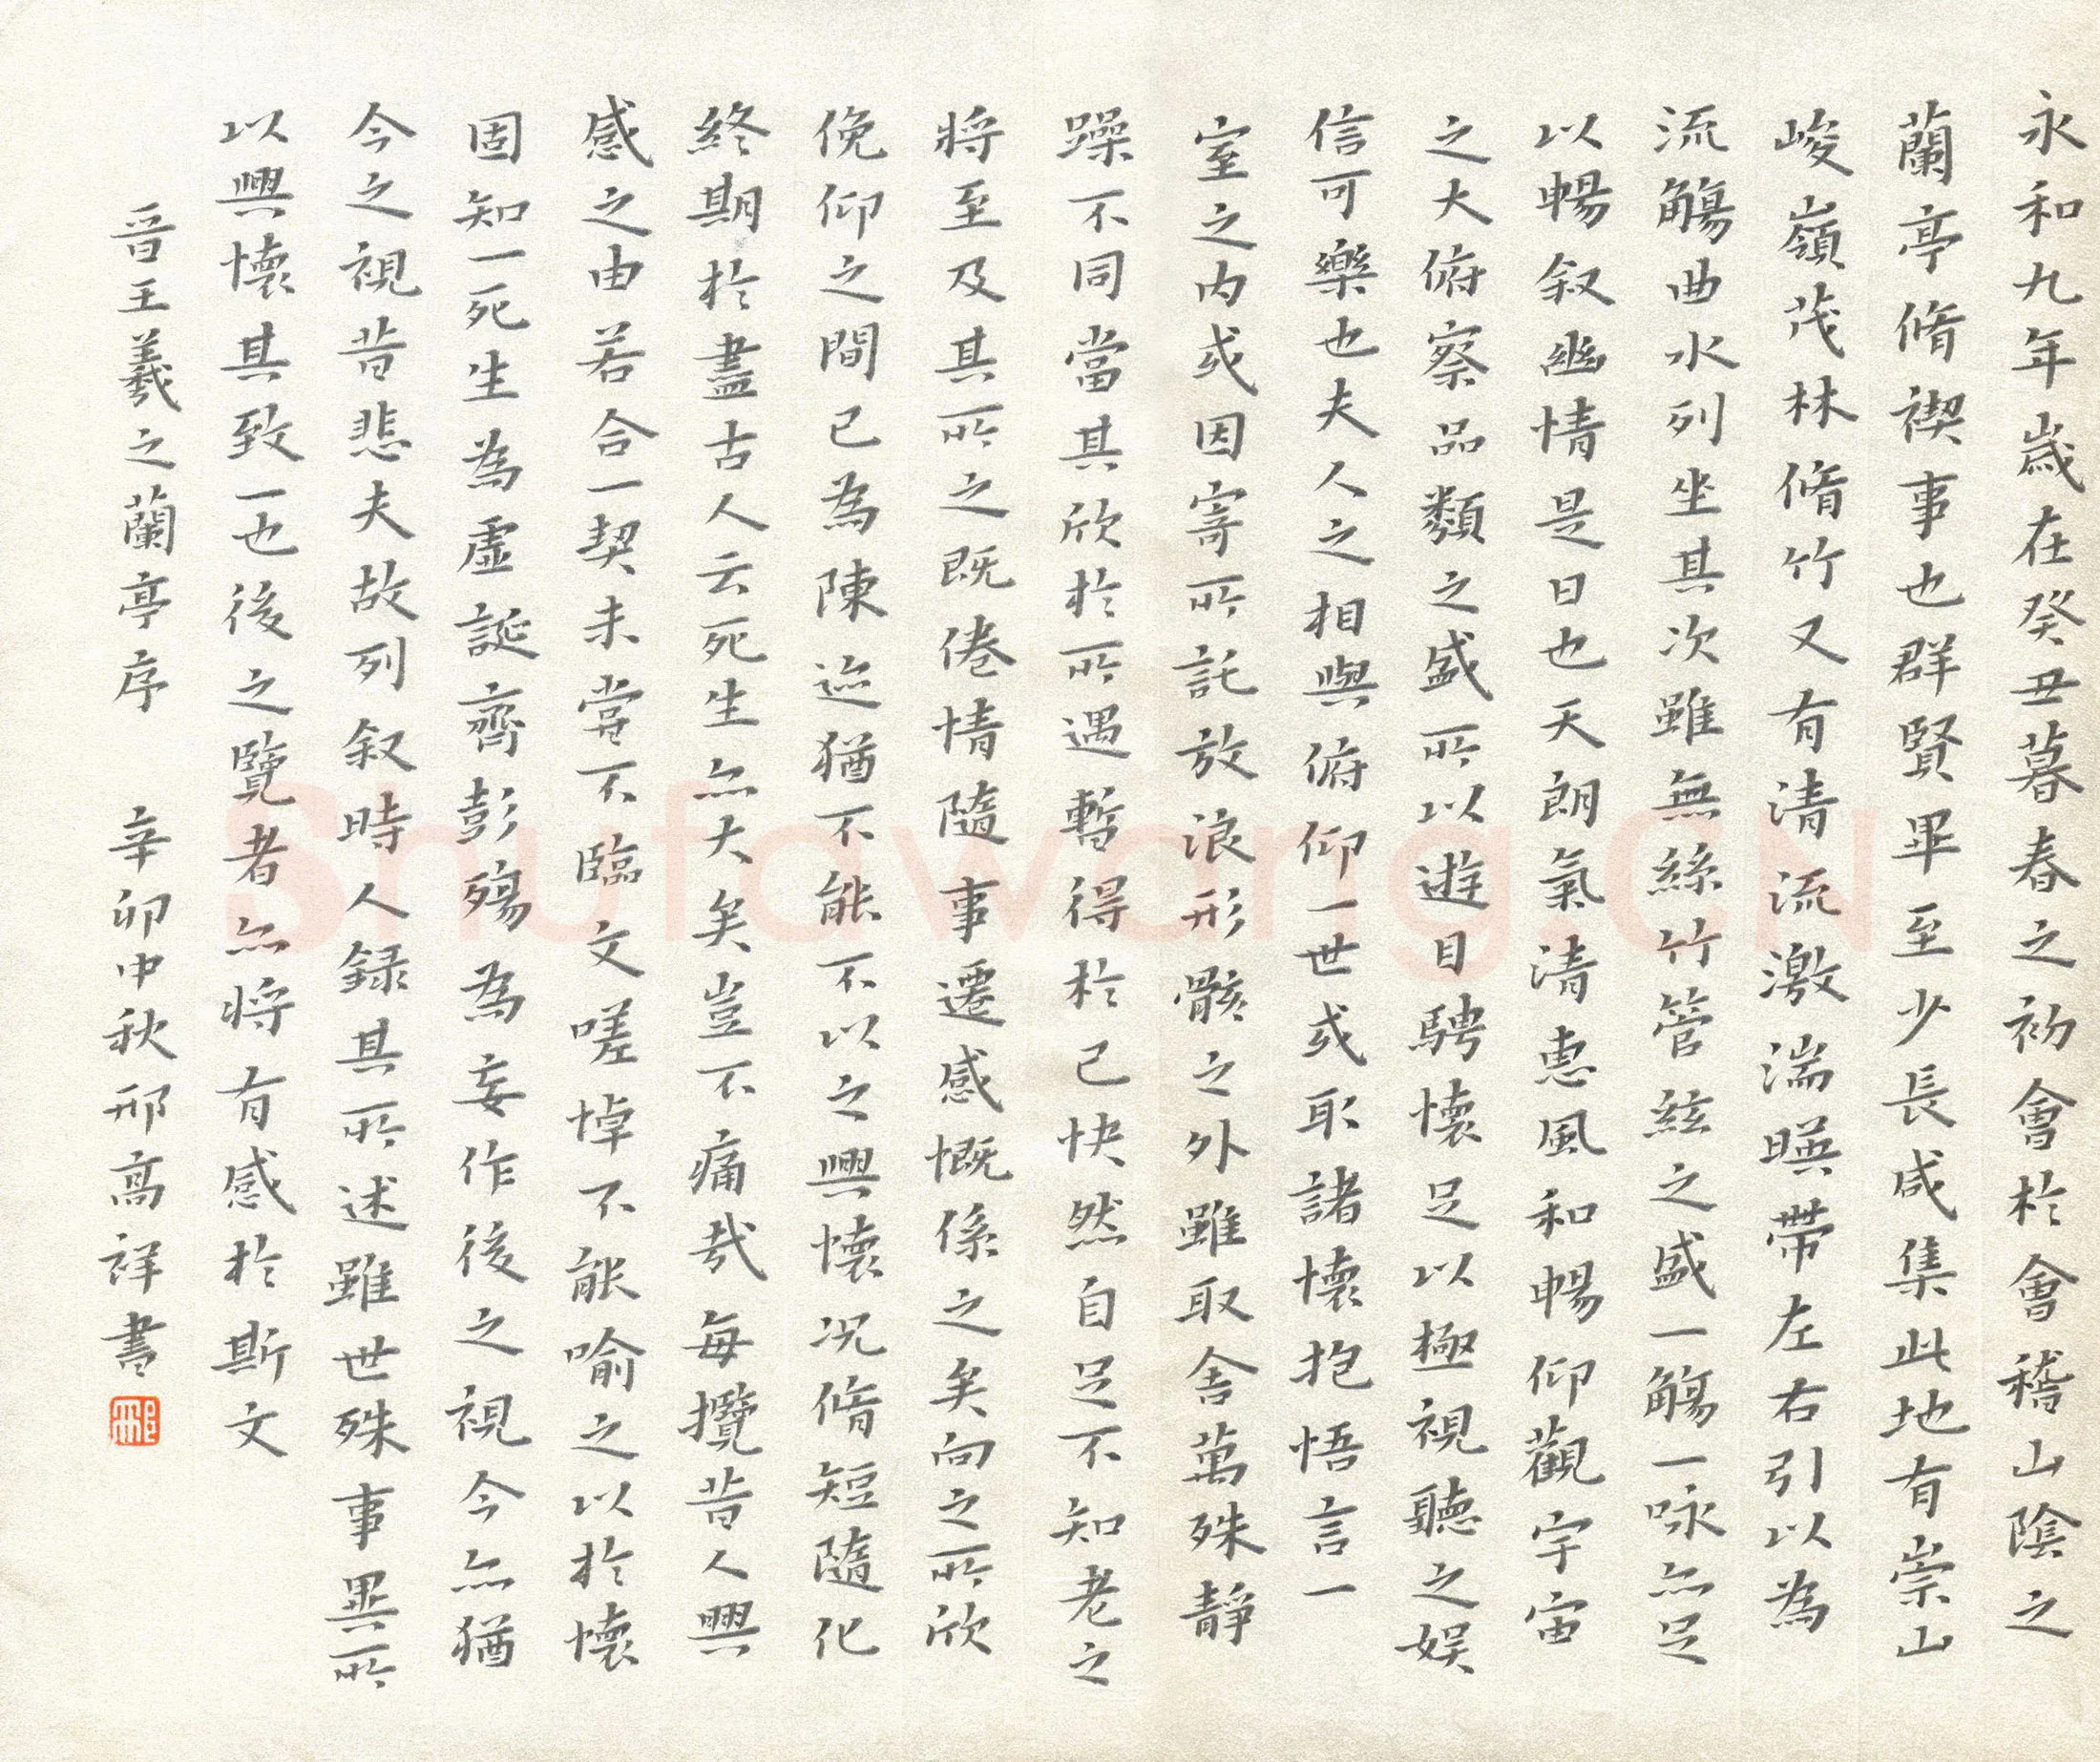 永和九年歲在癸丑暮春之初會於會稽山陰之
蘭亭脩禊事也群賢畢至少長咸集此地有崇山
峻嶺茂林脩竹又有清流激湍暎帶左右引以為
流觴曲水列坐其次雖無絲竹管絃之盛一觴一咏亦足
以暢叙幽情是日也天朗氣清惠風和暢仰觀宇宙
之大俯察品類之盛所以遊目騁懷足以極視聽之娱
信可樂也夫人之相與俯仰一世或取諸懷抱悟言一
室之内或因寄所託放浪形骸之外雖取舍萬殊靜
躁不同當其欣於所遇暫得於己快然自足不知老之
將至及其所之既倦情隨事遷感慨係之矣向之所欣
俛仰之間已為陳迹猶不能不以之興懷况脩短隨化
終期於盡古人云死生亦大矣豈不痛哉每攬昔人興
感之由若合一契未嘗不臨文嗟悼不能喻之以於懷
固知一死生為虛誕齊彭殤為妄作後之視今亦猶
今之視昔悲夫故列叙時人録其所述雖世殊事異所
以興懷其致一也後之覽者亦将有感於斯文
晉王羲之蘭亭序 辛卯中秋邢高祥書
邢
Shufawang.CN